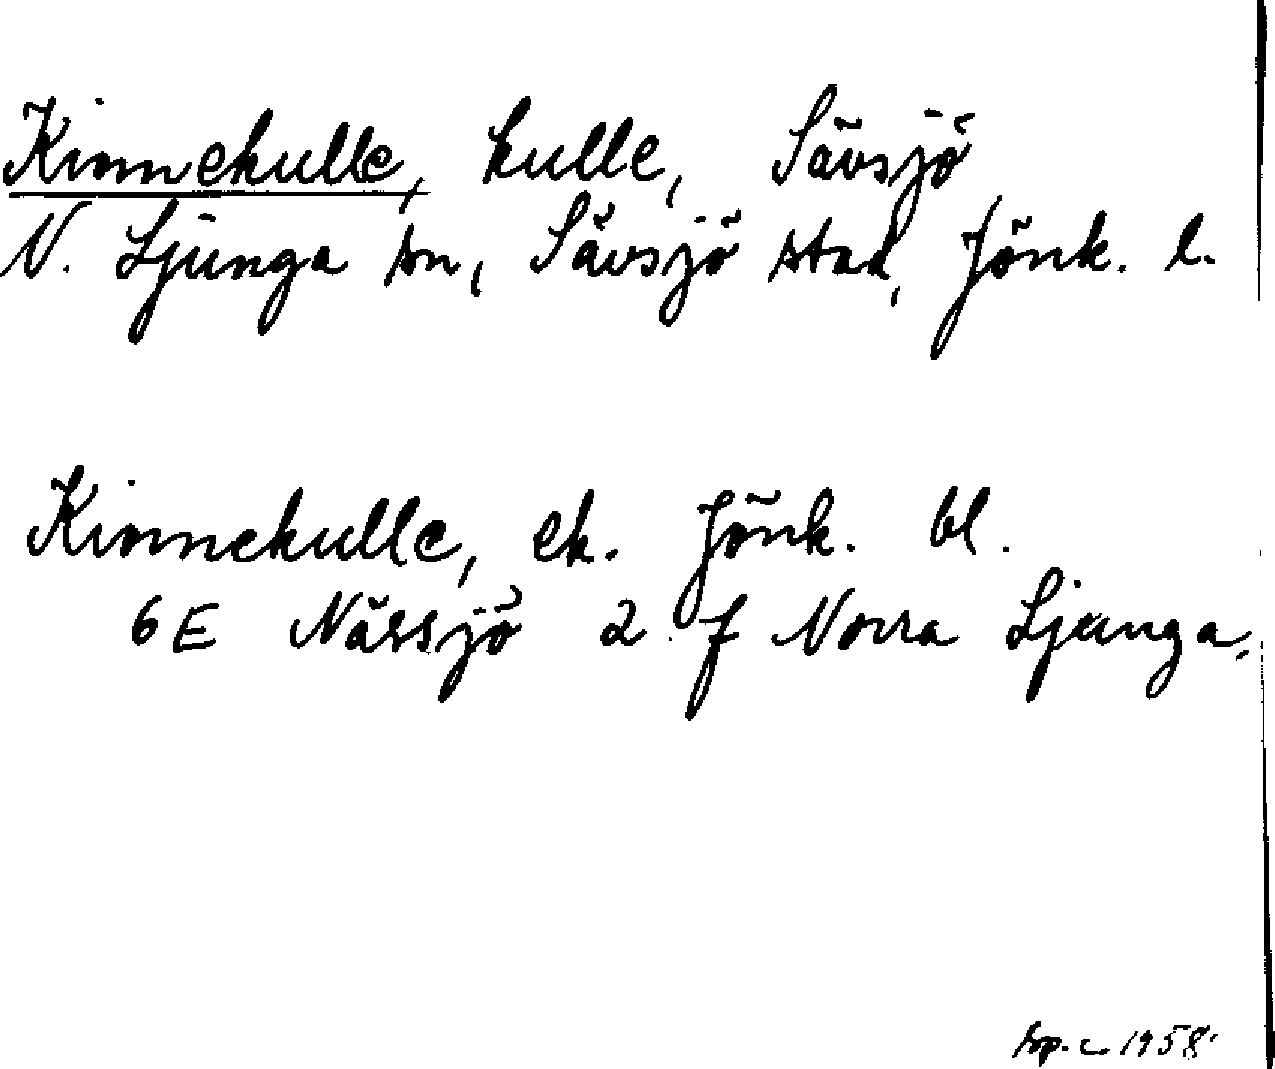 Kinnekulle, kulle, Sävsjö
N. Ljunga sn, Sävsjö stad, Jönk. l.
Kinnekulle, ek. Jönk. bl.
6E Nässjö 2 f Norra Ljunga.
1958